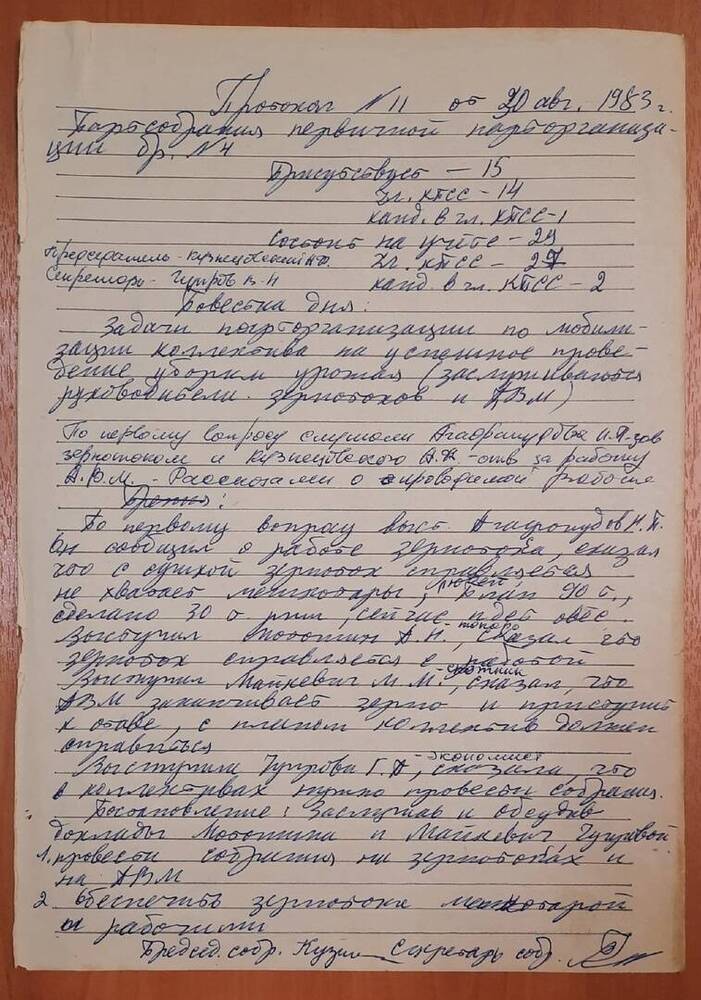 Протокол N 11 от 20 авг. 1983 г.
Партсобрания первичной парторганиза-
ции бр. N 4
Присутствует – 15
Чл. КПСС – 14
канд. в чл. КПСС – 1
Состоит на учёте – 29
Председатель –
Чл. КПСС – 27
Секретарь –
канд. в чл. КПСС – 2
Повестка дня:
Задачи парторганизации по мобили-
зации коллектива на успешное прове-
дение уборки урожая (заслушиваются
руководители зернотоков и АВМ)
По первому вопросу слушали Агафопудова Н.П. – зав
зернотоком и Кузнецовского – отв за работу
А.В.М. – Рассказали о проводимой работе
Прения:
По первому вопросу выст. Агафопудов Н.П.
Он сообщил о работе зернотока, сказал
что с сушкой зерноток справляется
не хватает мешкотары, людей план 90 т.,
сделано 30 т. ржи, сейчас идет овёс.
Выступил А.Н., сказал что
зерноток справляется с работой
Выступил Майкевич М.М., сказал, что
АВМ заканчивает зерно и приступит
к отаве, с планом коллектив должен
справиться
Выступила Чупрова Г.А – экономист, сказала, что
в коллективах нужно провести собрания.
Постановление: Заслушав и обсудив
доклады и Майкевич, Чупровой
1. провести собрания на зернотоках и
на АВМ
2 Обеспечить зернотока мешкотарой
и рабочими
Председ. собр. Секретарь собр.